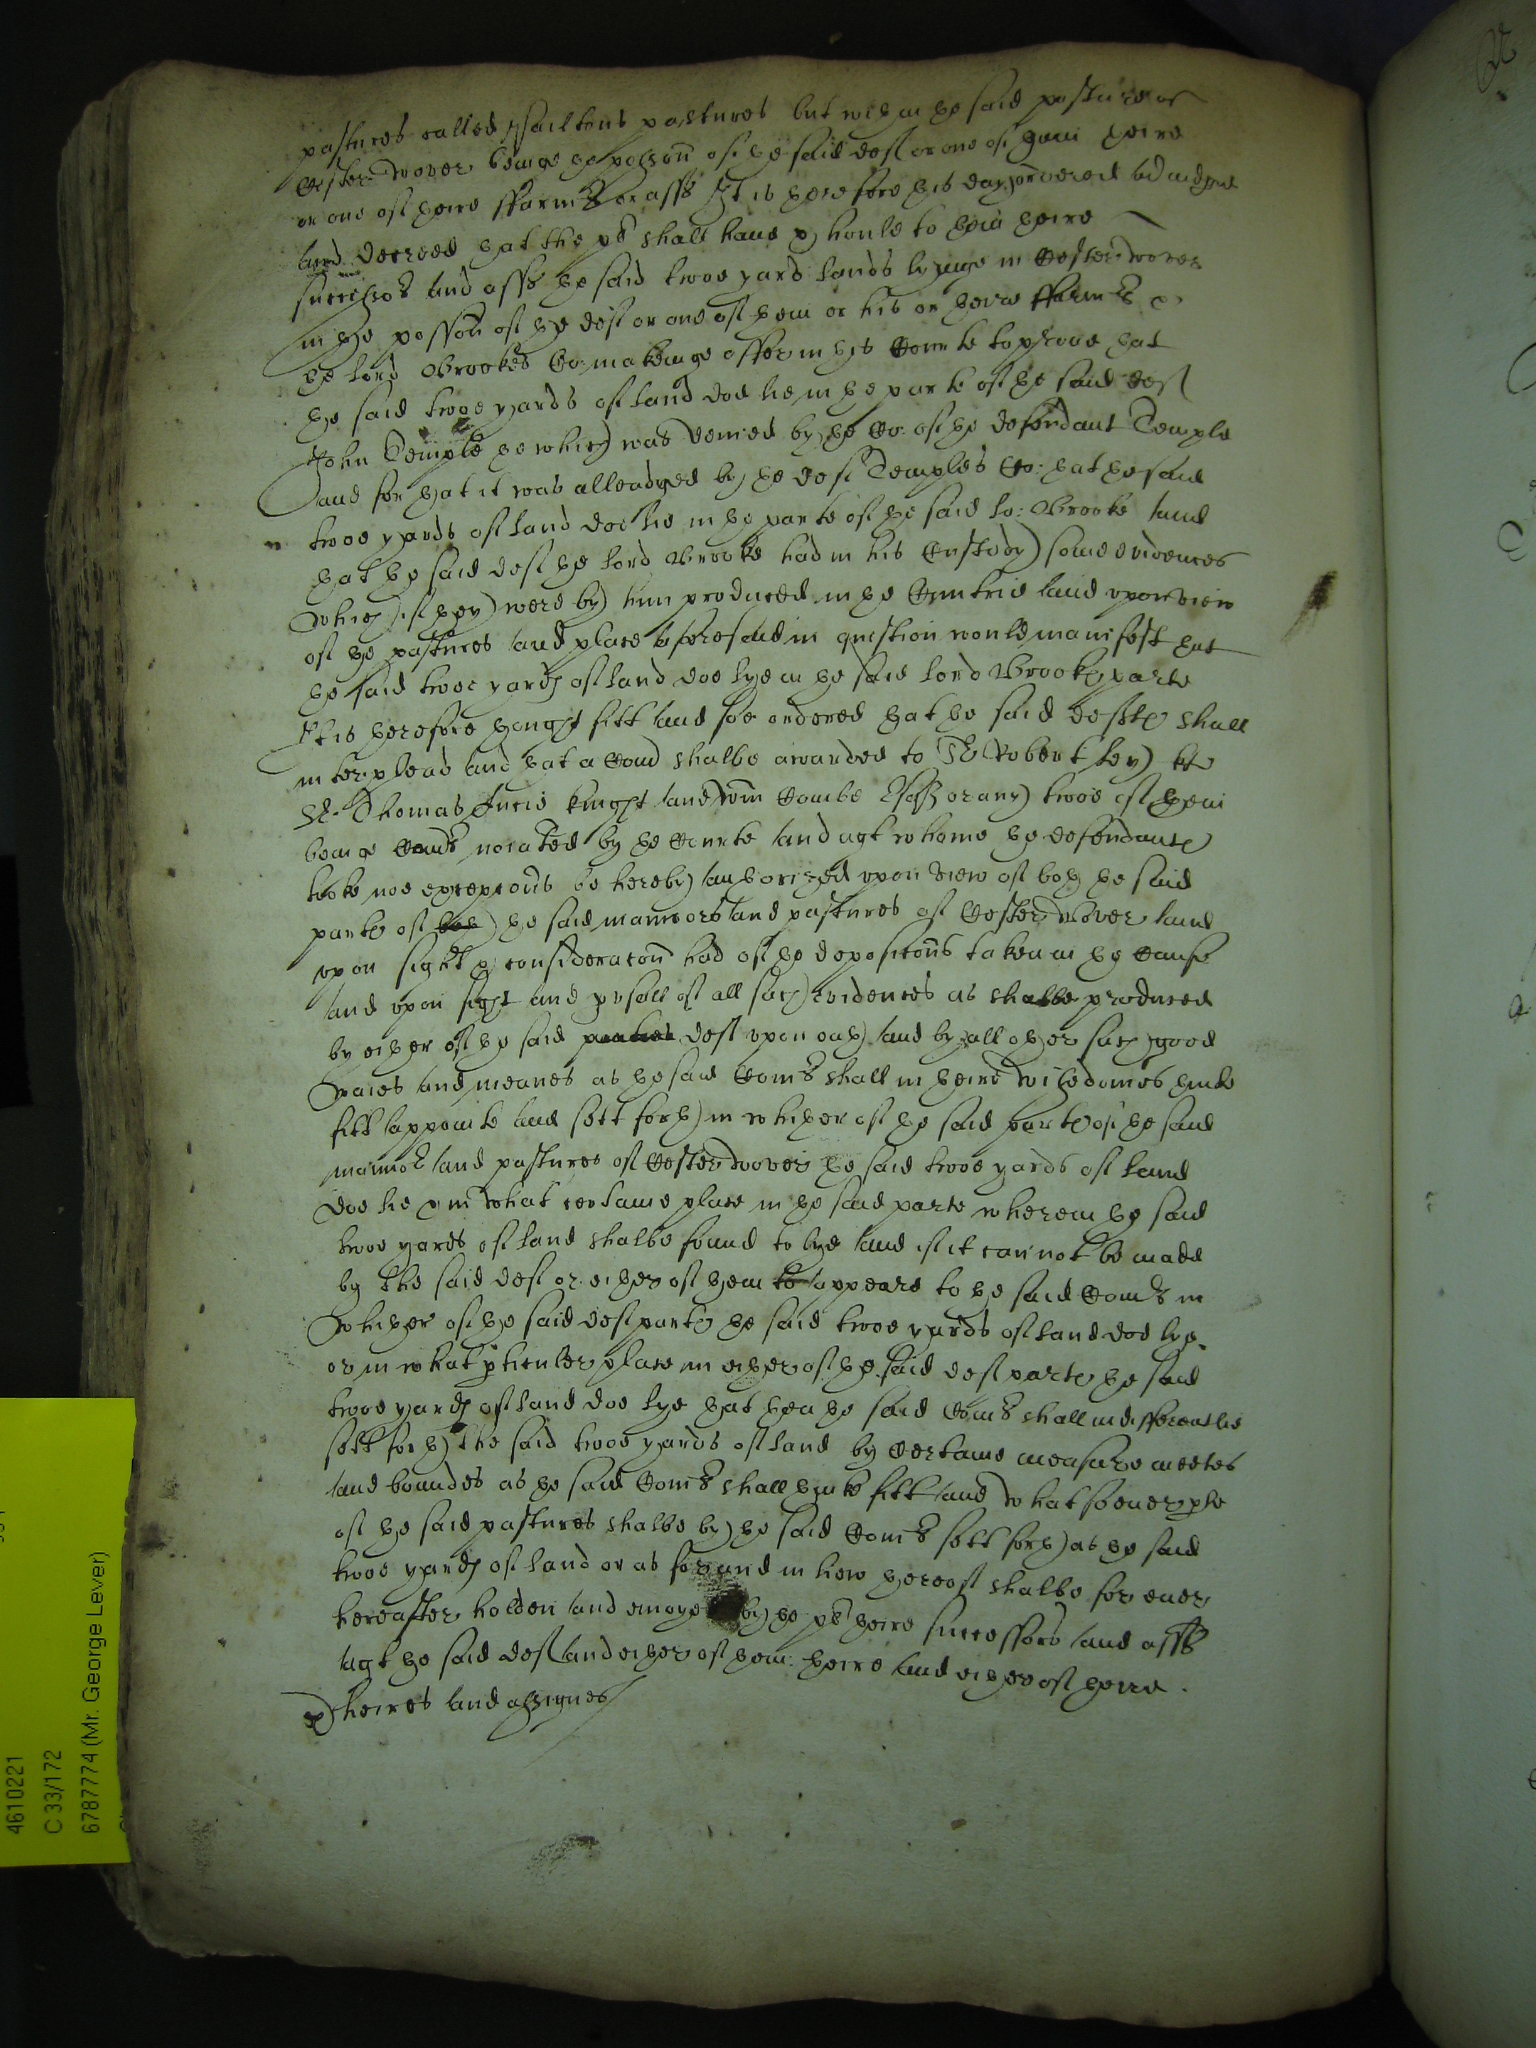 pastures called pastures but within the said pastures of
Cester Dover beinge the posson of the said def or one of them theire
or one of theire ffarmrs or asss It is therefore this day ordered adiudged
and decreed that the pl shall have & hould to them theire
successors and asss the said twoe yard lands lyinge in Cester Dover
in the posson of the def or one of them or his or theire ffarmrs &
the lord Brookes Co: makeinge offer in this Courte to prove that
the said twoe yards of land doe lie in the parte of the said def
John Temple the which was denied by the Co: of the defendant Temple
and for that it was alleadged by the def Temples Co: that the said
twoe yards of land doe lie in the parte of the said lo: Brooke and
that the said def the lord Brooke had in his Custody some evidences
which if they were by him produced in the Cuntrie and upon view
of the pastures and place aforesaid in question would manifest that
the said twoe yards of land doe lye in the said lord Brookes parte
It is therefore thought fitt and soe ordered that the said defts shall
interplead and that a Comd shalbe awarded to Sr Robert Ley kt
Sr Thomas Lucie knight and Wm Combe Esqr or any twoe of them
beinge Comrs noiated by the Courte and agt whome the defendants
tooke noe excepcons be hereby authorized upon view of both the said
partes of the said mannors and pastures of Cester Dover and
upon sight & consideracon had of the deposicons taken in the Cause
and upon sight and pusall of all such evidences as shalbe produced
by either of the said def upon oath and by all other such good
waies and meanes as the said Comrs shall in theire wisedomes thinke
fitt appointe and sett forth in whether of the said partes of the said
mannor and pastures of Cester Dover the said twoe yards of land
doe lie & in what certaine place in the said parte wherein the said
twoe yards of land shalbe found to lye and if it cannot be made
by the said def or either of them to appeare to the said Comrs in
whether of the said def partes the said twoe yards of land doe lye
or in what pticuler place in either of the said def partes the said
twoe yards of land doe lye that then the said Comrs shall indifferentlie
sett forth the said twoe yards of land by certaine measure meetes
and boundes as the said Comrs shall thinke fitt and whatsoever pte
of the said pastures shalbe by the said Comrs sett forth as the said
twoe yards of land or as for and in liew thereof shalbe for ever
hereafter holden and enioyed by the pl theire successors and asss
agt the said def and either of them theire and either of theire
heires and assignes
4610221
C 33/172
6787774 (Mr. George Lever)